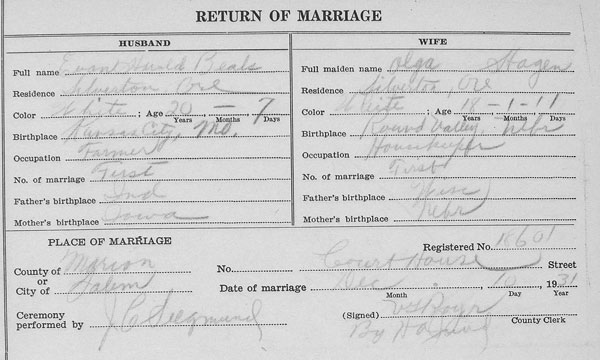 RETURN OF MARRIAGE
HUSBAND
Full name Beals
Residence Silverton, Ore
Color White ; Age 20 — 7
Years Months Days
Birthplace Kansas City, Mo.
Occupation Farmer
No. of marriage First
Father's birthplace Ind
Mother's birthplace Iowa
WIFE
Full maiden name Olga Hagen
Residence Silverton, Ore
Color White ; Age 18 - 1 - 11
Years Months Days
Birthplace Round Valley, Nebr
Occupation Housekeeper
No. of marriage First
Father's birthplace Wisc
Mother's birthplace Nebr
PLACE OF MARRIAGE
County of Marion
or
City of Salem
Ceremony
performed by J C Siegmund
Registered No. 18601
No. Court House Street
Date of marriage Dec 10 1931
Month Day Year
(Signed) U G Boyer
By
County Clerk